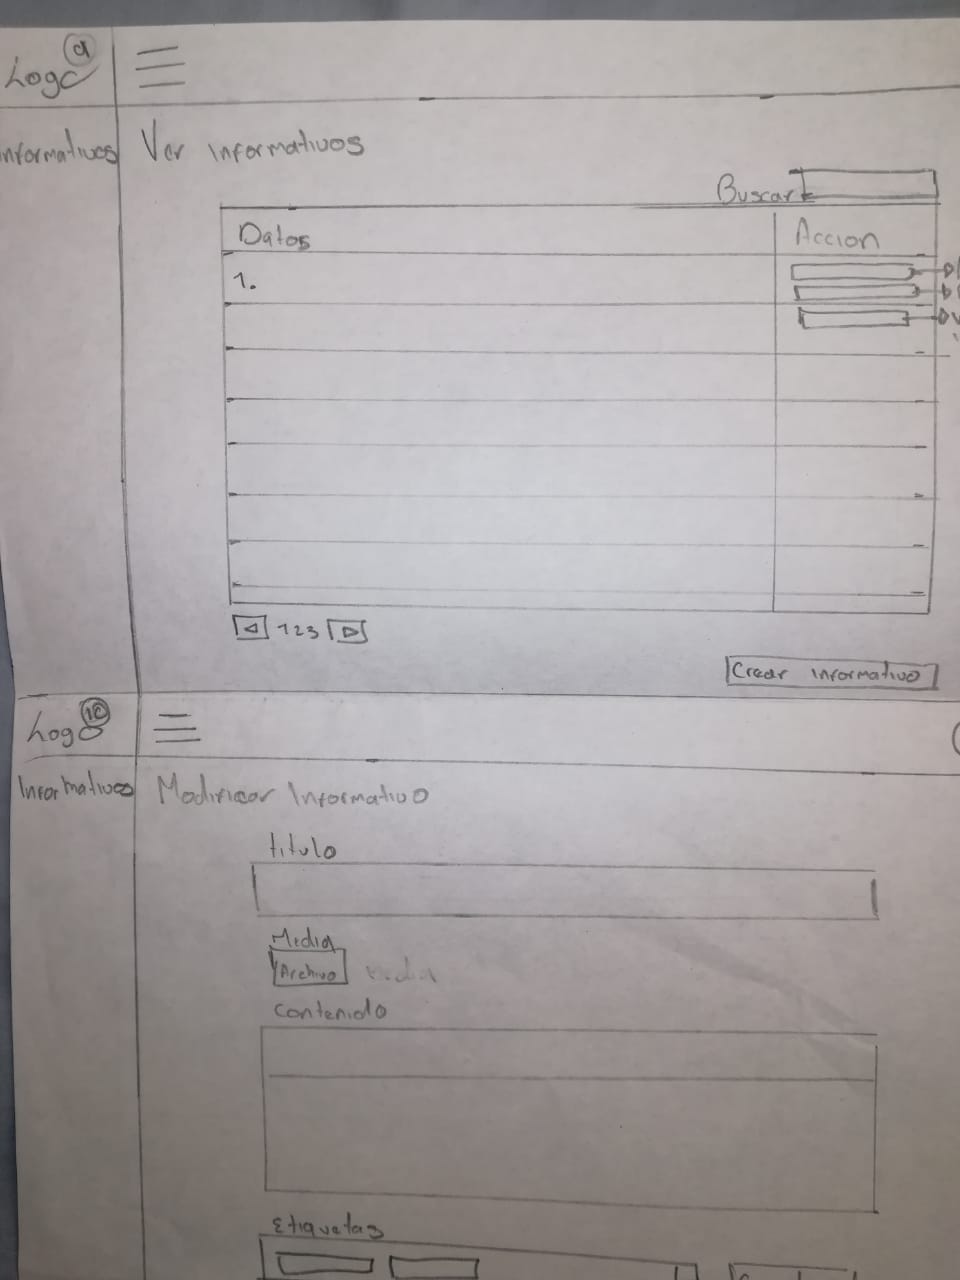 Logo 9
Informativos
Ver Informativos
Buscar
Datos
Accion
1.
123
Crear Informativo
Logo 10
Informativos
Modificar Informativo
titulo
Media
Archivo
Contenido
Etiquetas